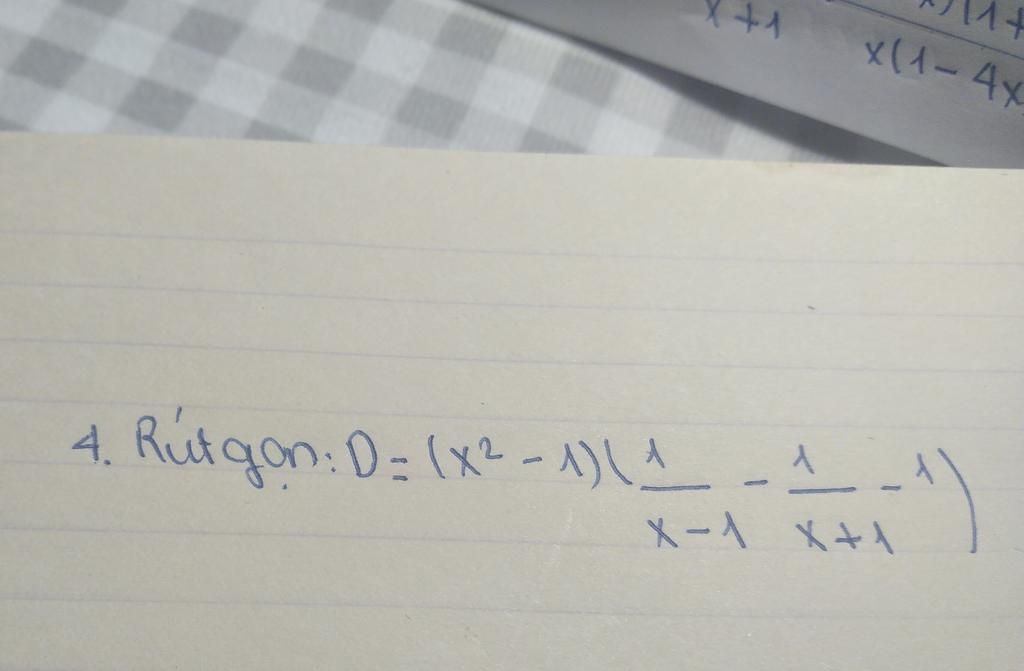 x+1
x(1-4x
4. Rút gọn: D = (x² - 1)(1/(x-1) - 1/(x+1) - 1)